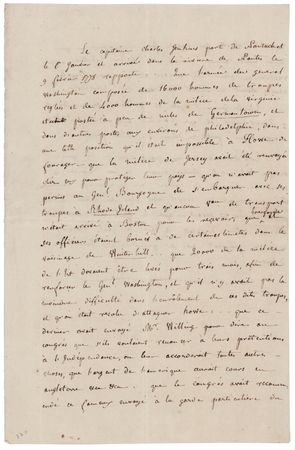 Le capitaine Charles Jenkins part de Nantucket
le 6 Janvier et arrivé dans la riviere de Nantes le
9 fevrier 1778 rapporte armée du general
Washington composée de 16000 hommes de troupes
reglés et de 4000 hommes de la milice de la Virginie
étaient postée à peu de milles de Germantown, et
dans d'autres postes aux environs de philadelphie, dans
une telle position qu'il étoit impossible à Howe de
fourager - que la milice de Jersey avoit été renvoyée
chez eux pour proteger leur pays - qu'on n'avoit pas
permis au Genl. Bourgogne de s'embarquer avec ses
troupes à Rhode Island et qu'aucun vaux de transport
n'etoit arrivé à Boston pour les recevoir que bourgogne
et ses officiers étaient bornés à de certaines limites dans le
voisinage de hill que 20000 de la milice
de l'Est devoient être levés pour trois mois, afin de
renforcer le Genl Washington, et qu'il n'y avoit pas la
moindre difficulté dans l'enrolement de ces dits troupes,
et qu'on étoit resolu d'attaquer howe que ce
dernier avoit envoyé Mr. Willing pour dire au
congrès que s'ils vouloient renoncer à leurs prétentions
à l'Independance, on leur accorderoit toutes autres
choses, que l'argent de l'amerique auroit cours en
angleterre que le congrès avoit recommandé
ce fameux envoyé à la garde particuliere du